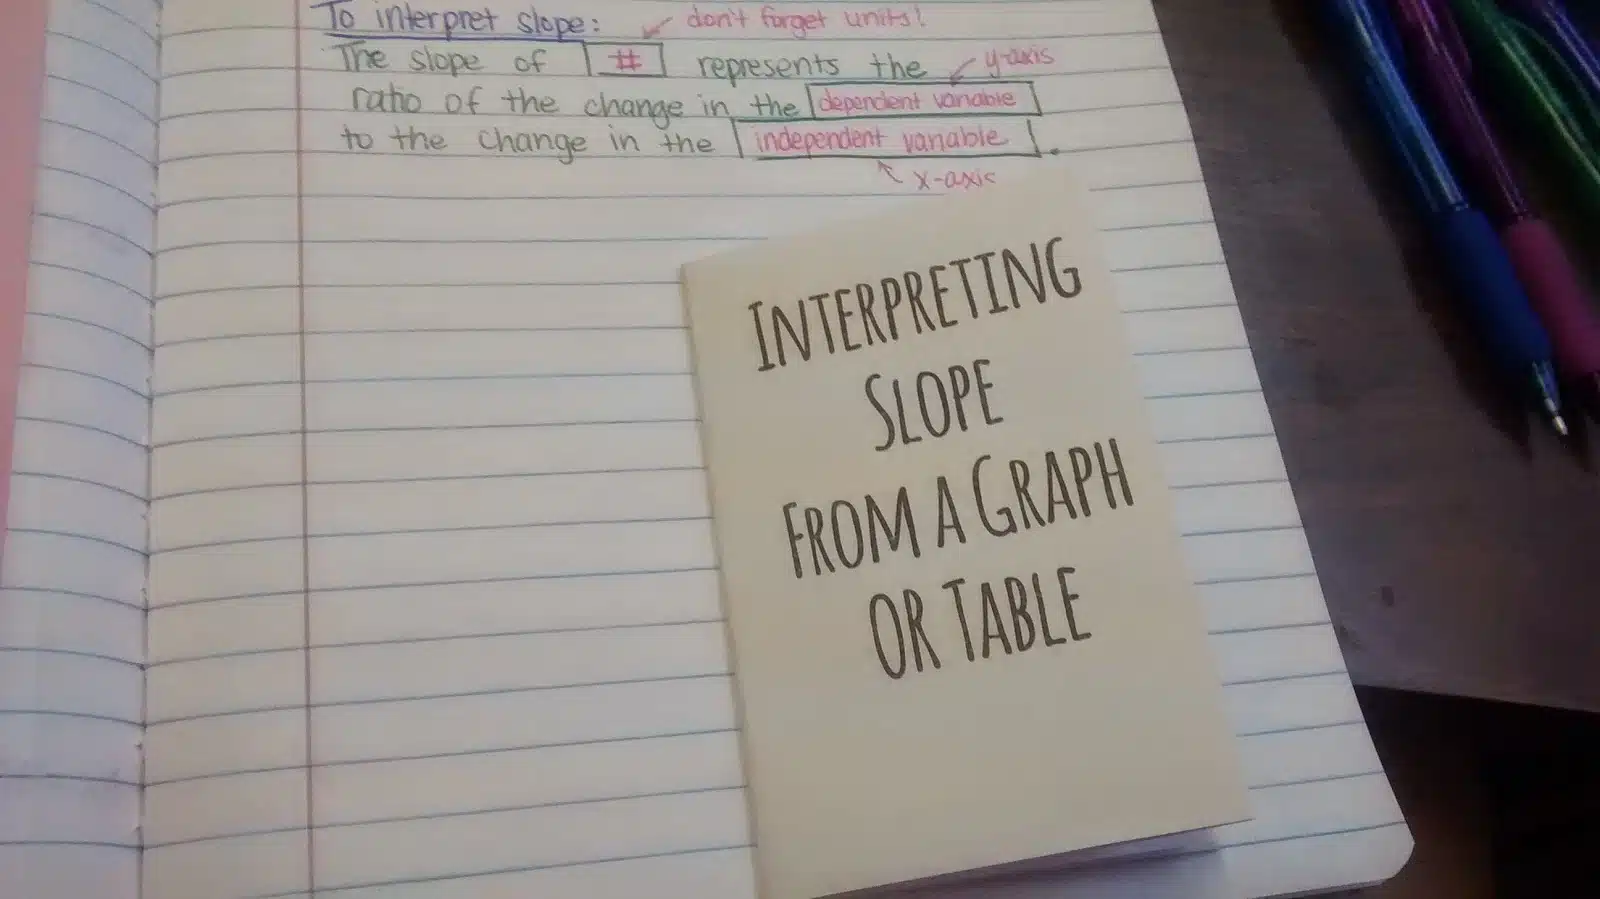 To interpret slope: don't forget units!
The slope of # represents the y-axis
ratio of the change in the dependent variable
to the change in the independent variable.
x-axis
INTERPRETING
SLOPE
FROM A GRAPH
OR TABLE